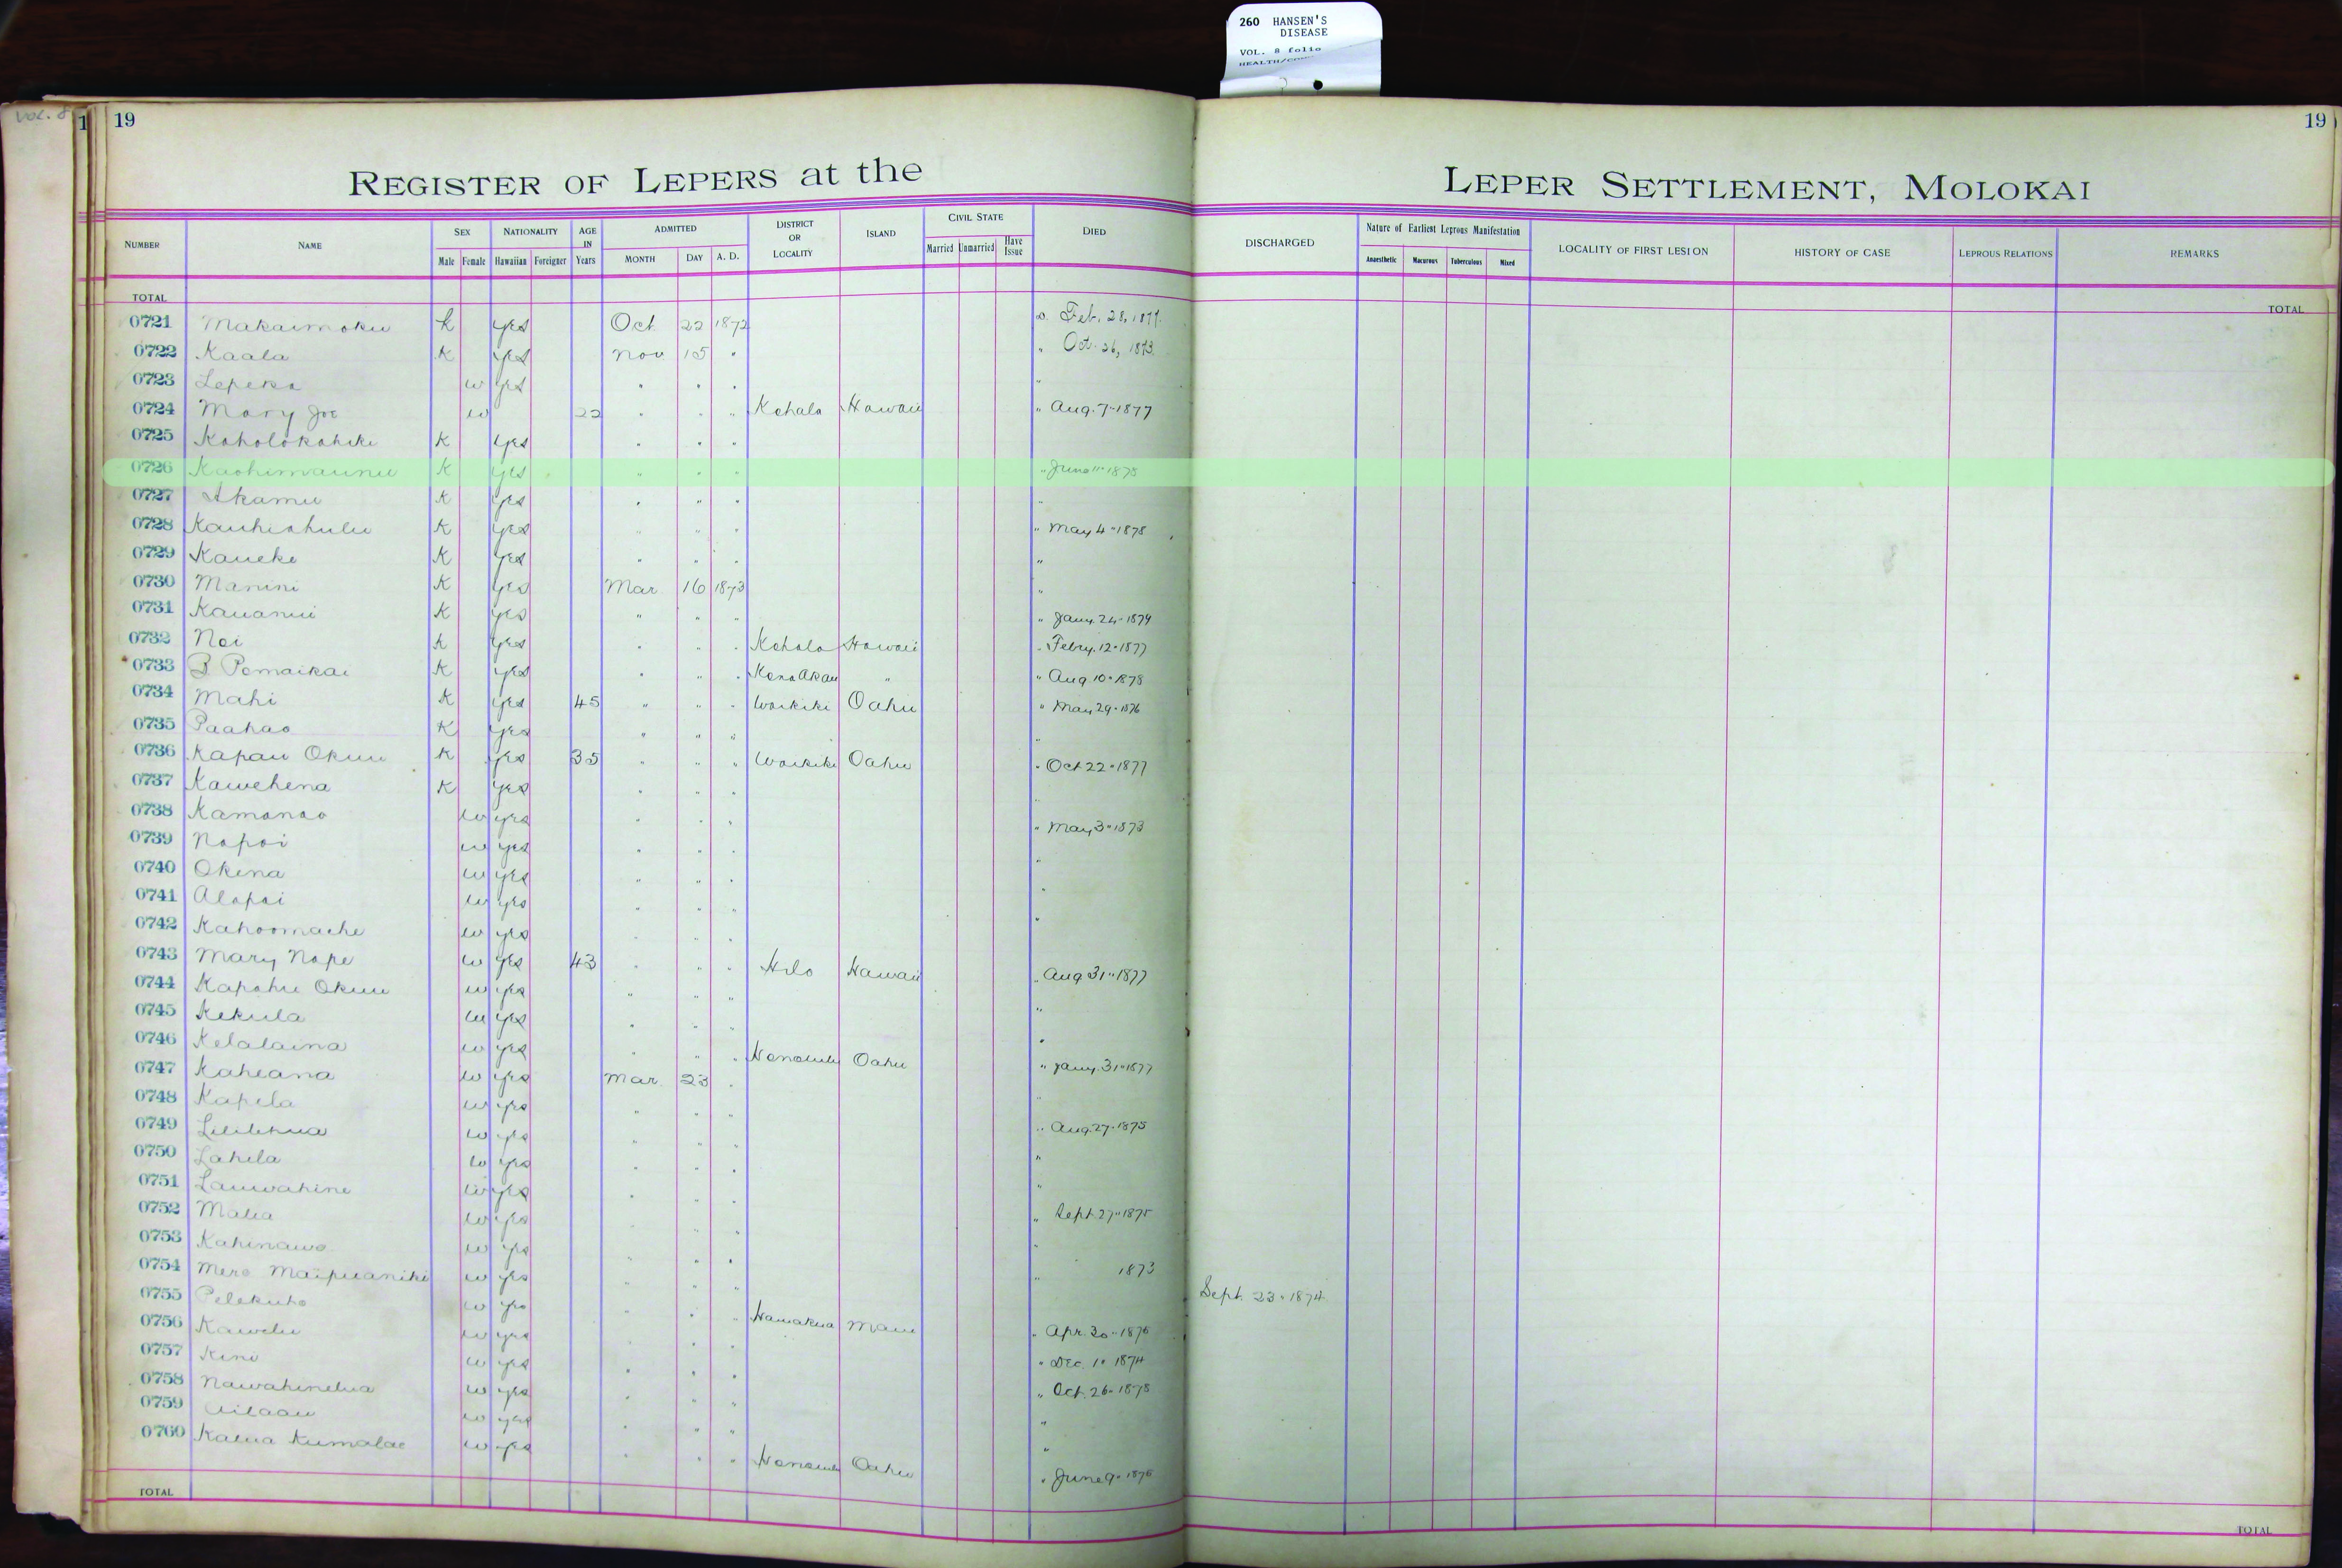 260 HANSEN'S
DISEASE
VOL. 8 folio
Vol. 8
1 19
19
REGISTER OF LEPERS at the LEPER SETTLEMENT, MOLOKAI
NUMBER NAME SEX NATIONALITY AGE IN Years ADMITTED DISTRICT OR LOCALITY ISLAND CIVIL STATE DIED DISCHARGED Nature of Earliest Leprous Manifestation LOCALITY OF FIRST LESION HISTORY OF CASE LEPROUS RELATIONS REMARKS
Male Female Hawaiian Foreigner MONTH DAY A. D. Married Unmarried Have Issue Anaesthetic Macurous Tuberculous Mixed
TOTAL TOTAL
0721 Makaimoku k yes Oct 22 1872 d. Feb. 28, 1877.
0722 Kaala K yes Nov 15 " " Oct. 26, 1873.
0723 Lepeka w yes " " " "
0724 Mary Joe w 22 " " " Kohala Hawaii " Aug. 7 " 1877
0725 Koholokahiki K yes " " "
0726 Kaohimaunu K yes " " " " June 11 " 1878
0727 Akamu K yes " " " "
0728 Kauhiahulu K yes " " " " May 4 " 1878
0729 Kaueke K yes " " " "
0730 Manini K yes Mar 16 1873 "
0731 Kauanui K yes " " " " Jany. 24 " 1874
0732 Noi K yes " " " Kohala Hawaii " Febry. 12 " 1877
0733 B Pomaikai K yes " " " Kona Akau " " Aug 10 " 1878
0734 Mahi K yes 45 " " " Waikiki Oahu " May 29 " 1876
0735 Paahao K yes " " " "
0736 Kapau Okuu K yes 35 " " " Waikiki Oahu " Oct 22 " 1877
0737 Kawehena K yes " " " "
0738 Kamanao w yes " " " " May 3 " 1873
0739 Napoi w yes " " " "
0740 Okena w yes " " " "
0741 Alapai w yes " " " "
0742 Kahoomache w yes " " "
0743 Mary Nape w yes 43 " " " Hilo Hawaii " Aug 31 " 1877
0744 Kapahu Okuu w yes " " " "
0745 Kekula w yes " " " "
0746 Kelalaina w yes " " " Honolulu Oahu " Jany. 31 " 1877
0747 Kaheana w yes Mar. 23 " "
0748 Kapela w yes " " " " Aug. 27 " 1875
0749 Lililehua w yes " " " "
0750 Lahela w yes " " " "
0751 Lauwahine w yes " " " " Sept 27 " 1875
0752 Malia w yes " " " "
0753 Kahinawe w yes " " " " 1873
0754 Mere Maipuaniki w yes " " " Sept. 23 " 1874
0755 Pelekuho w yes " " " Hamakua Maui " Apr. 30 " 1876
0756 Kawelu w yes " " " Dec. 1 " 1874
0757 Kini w yes " " " " Oct. 26 " 1878
0758 Nawahinelua w yes " " " "
0759 Ailaau w yes " " " "
0760 Kalua Kumalae w yes " " " Honolulu Oahu " June 9 " 1876
TOTAL TOTAL